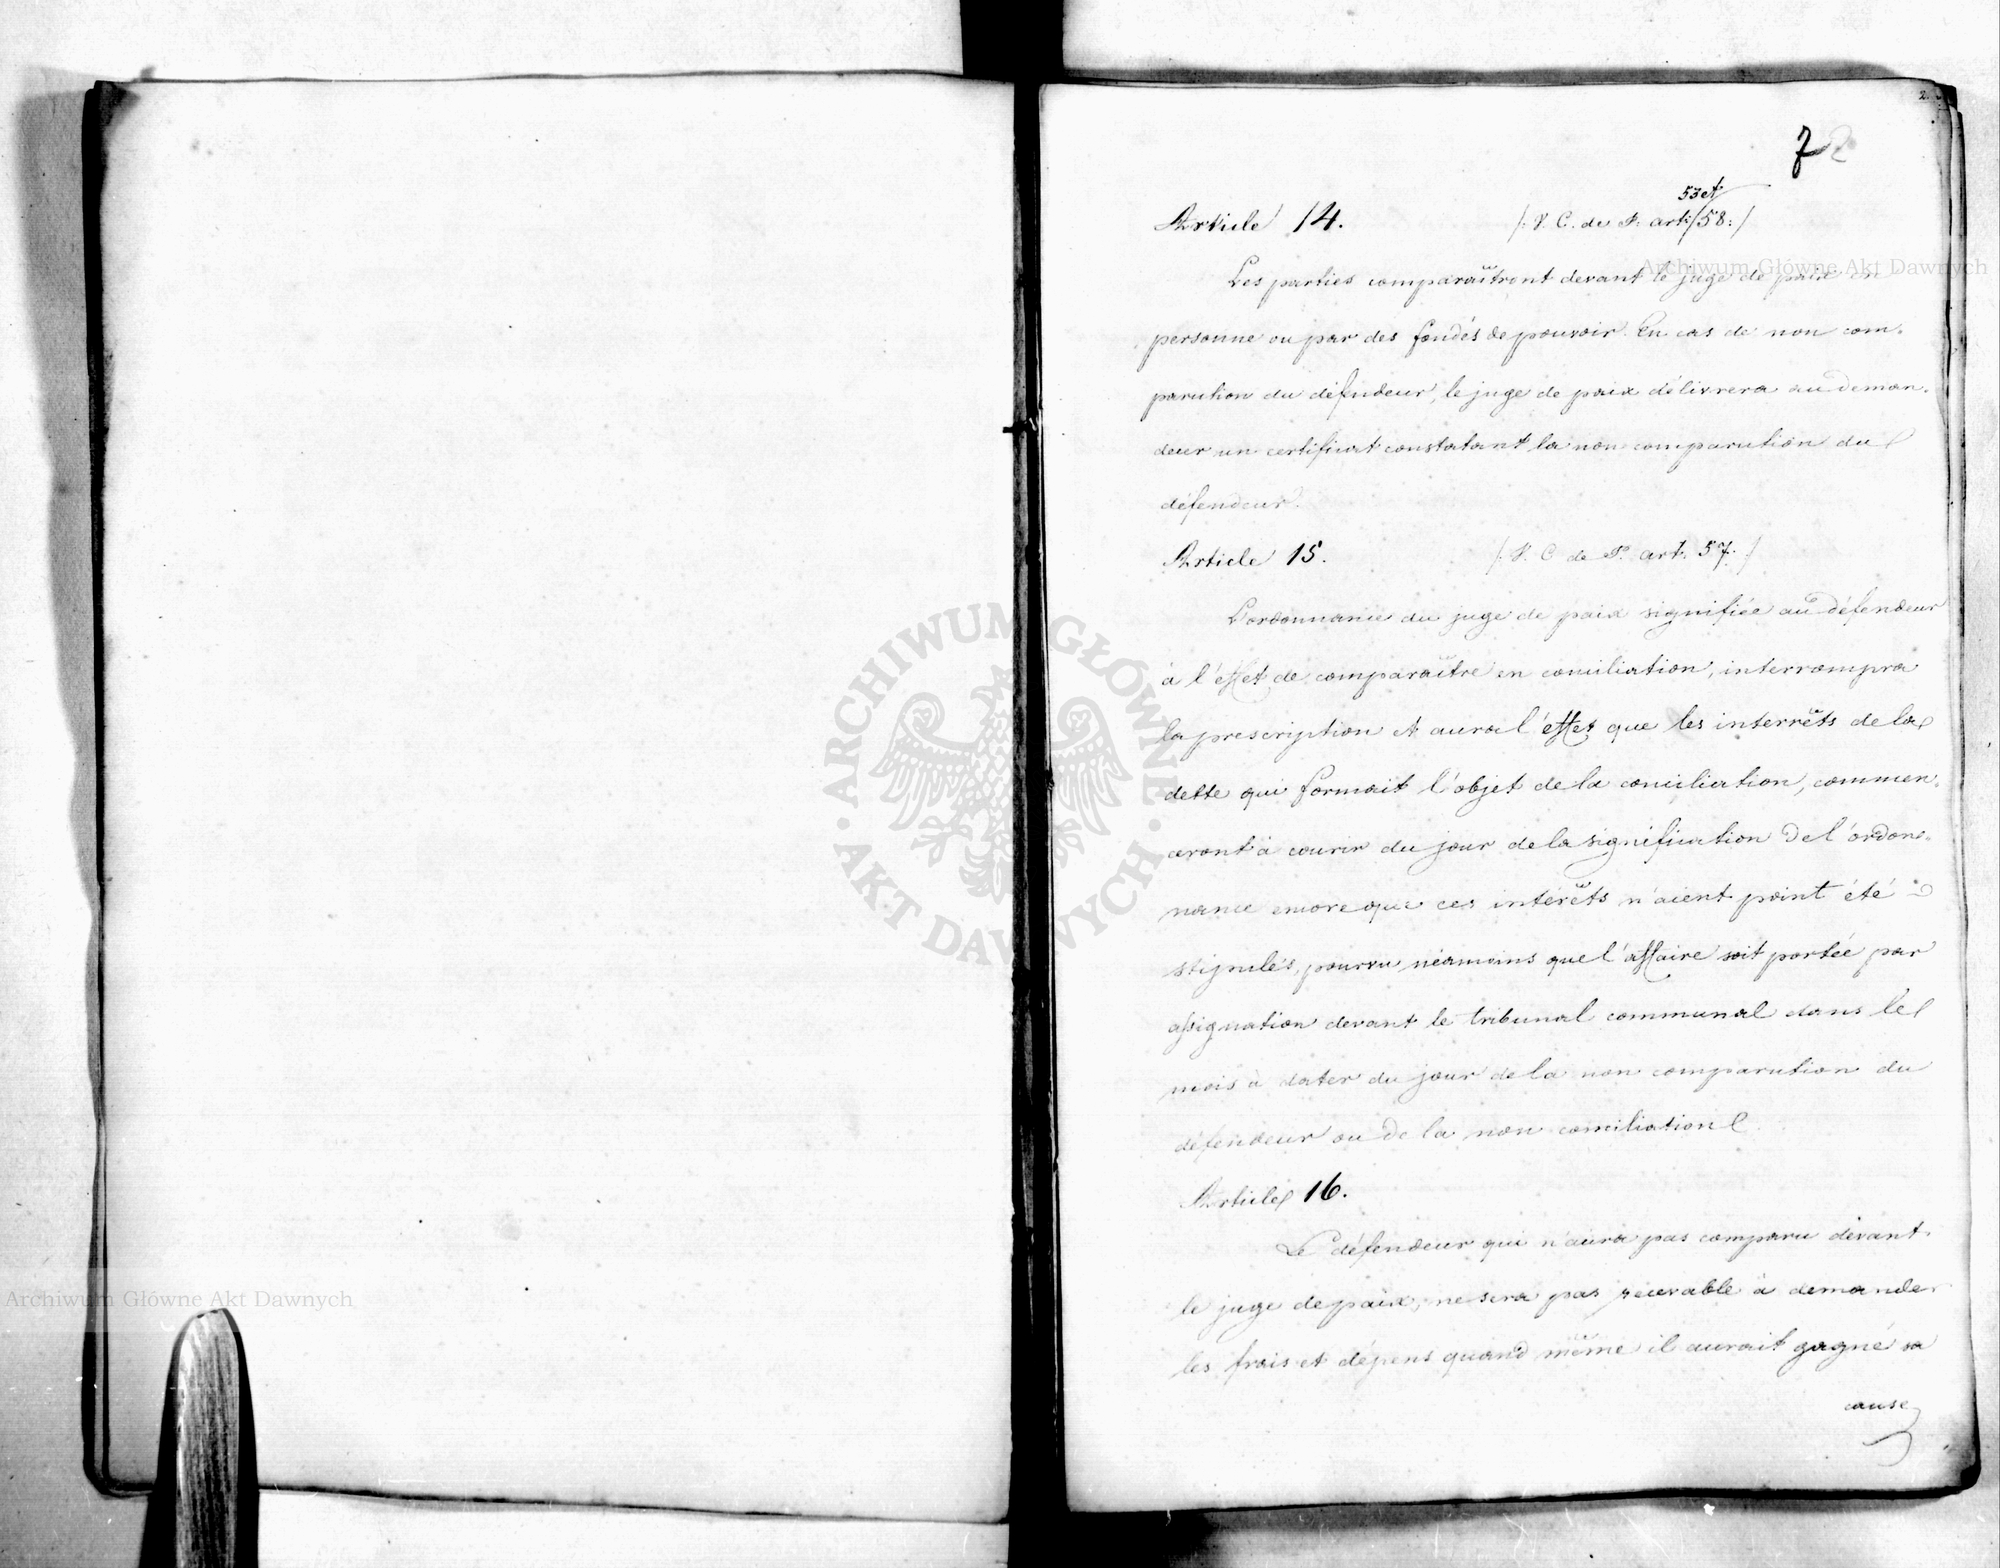 7 2
53 et
Article 14. /: V. C. de P: art: 58 :/
Les parties comparaîtront devant le juge de paix en
personne ou par des fondés de pouvoir. En cas de non com-
parution du défendeur, le juge de paix délivrera au deman-
deur un certificat constatant la non comparution du
défendeur.
Article 15. /: V. C de P. art. 57. :/
L'ordonnance du juge de paix signifiée au défendeur
à l'effet de comparaître en conciliation, interrompra
la prescription et aura l'effet que les interrêts de la
dette qui formait l'objet de la conciliation, commen-
ceront à courir du jour de la signification de l'ordon-
nance encore que ces intérêts n'aient point été
stipulés, pourvu néamoins que l'affaire soit portée par
assignation devant le tribunal communal dans le
mois à dater du jour de la non comparution du
défendeur ou de la non conciliation
Article 16.
Le défendeur qui n'aura pas comparu devant
le juge de paix, ne sera pas recevable à demander
les frais et dépens quand même il aurait gagné sa
cause
Archiwum Główne Akt Dawnych
ARCHIWUM GŁÓWNE AKT DAWNYCH
Archiwum Główne Akt Dawnych